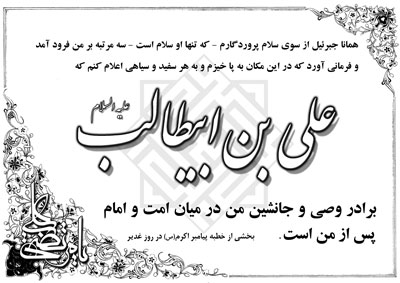 همانا جبرئیل از سوی سلام پروردگارم - که تنها او سلام است - سه مرتبه بر من فرود آمد
و فرمانی آورد که در این مکان به پا خیزم و به هر سفید و سیاهی اعلام کنم که
علی بن ابیطالب علیه السلام
برادر وصی و جانشین من در میان امت و امام
پس از من است .
بخشی از خطبه پیامبر اکرم(ص) در روز غدیر